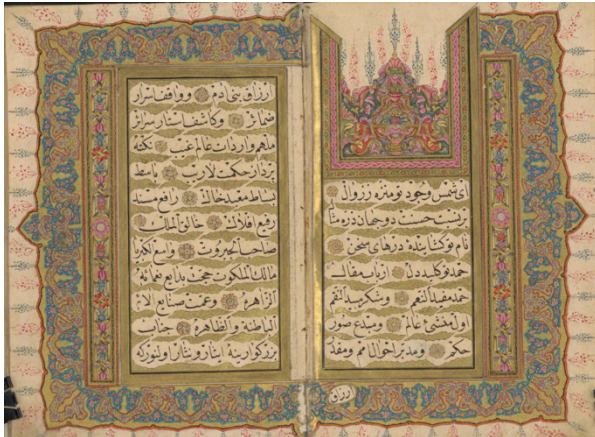 ای شمس وجود تو منزه ز زوال
حسنت دو جهان ذره مثال
نام تو کشاینده درهای سخن
حمد تو کلید دل ارباب مقال
حمد مفید النعم و شکر مبید النقم
اول منشئ عالم و مبدع صور
حکم و مدبر احوال امم و مقدر
ارزاق
ارزاق بنی آدم و واقف اسرار
ضمائر و کاشف استار سرائر
ملهم واردات عالم غیب نکته
پرداز حکمت لاریب باسط
بساط معبد خاک رافع مسند
رفیع افلاک خالق الملک
صاحب الجبروت واسع الکبریا
مالک الملکوت بدایع نعمائه
الزاهره و عمت صنایع الائه
الباطنة والظاهرة جناب
بزرکوارینه ایثار و نثار اولنور که